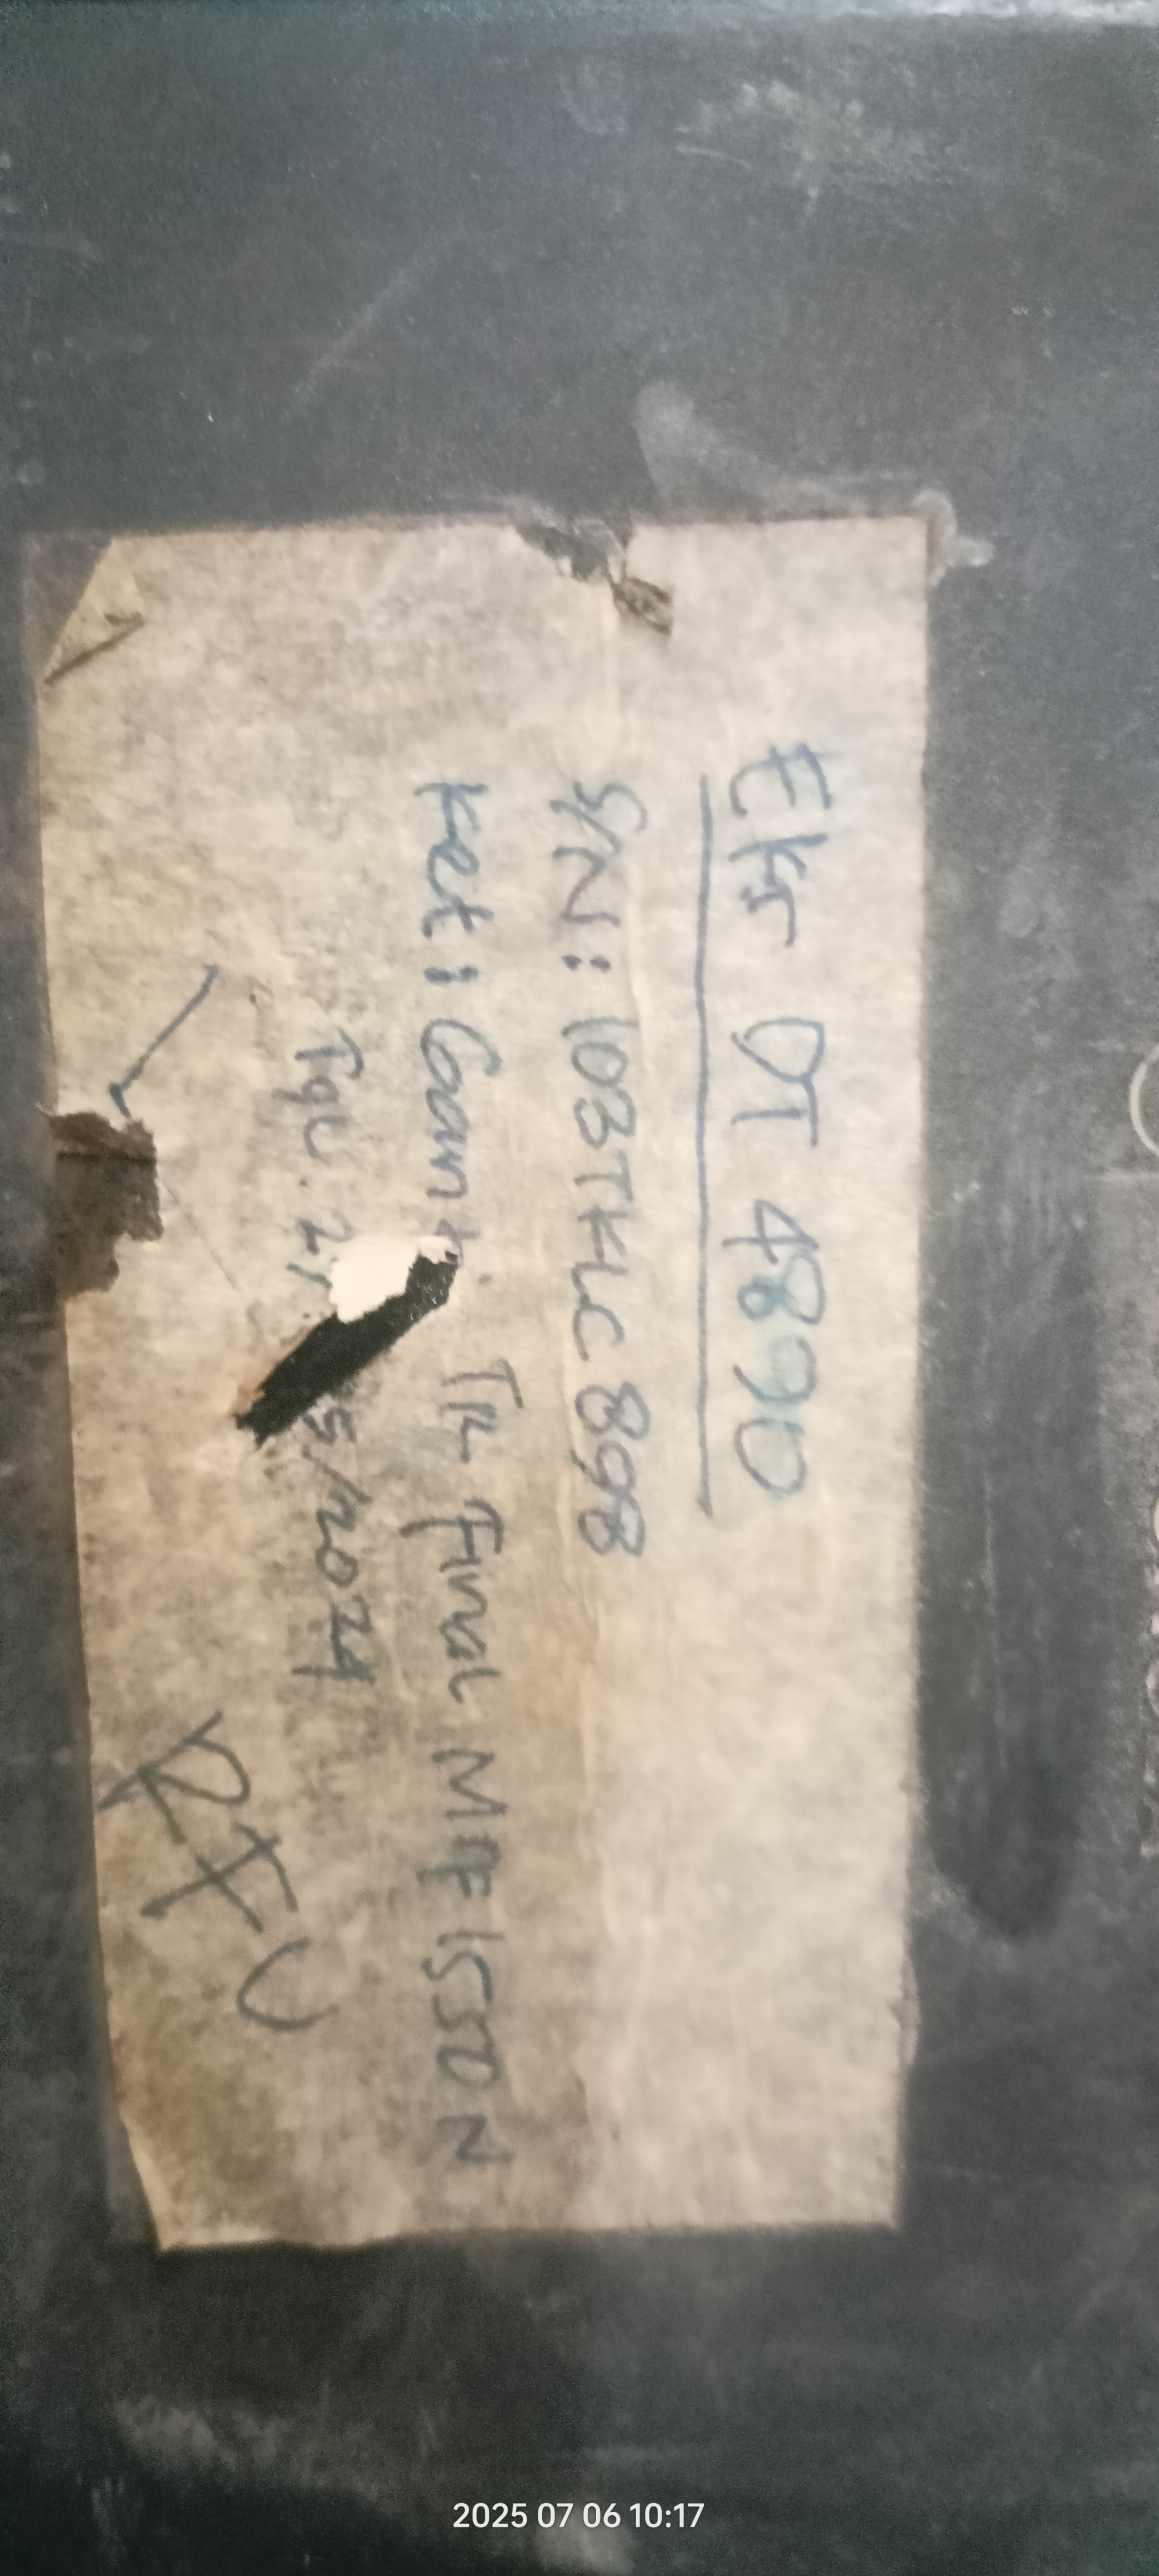 Eks DT 4890
S/N: 103TKLC898
Ket: TR Final MF ISSON
Tgl. 21 5/2024
RFU
2025 07 06 10:17